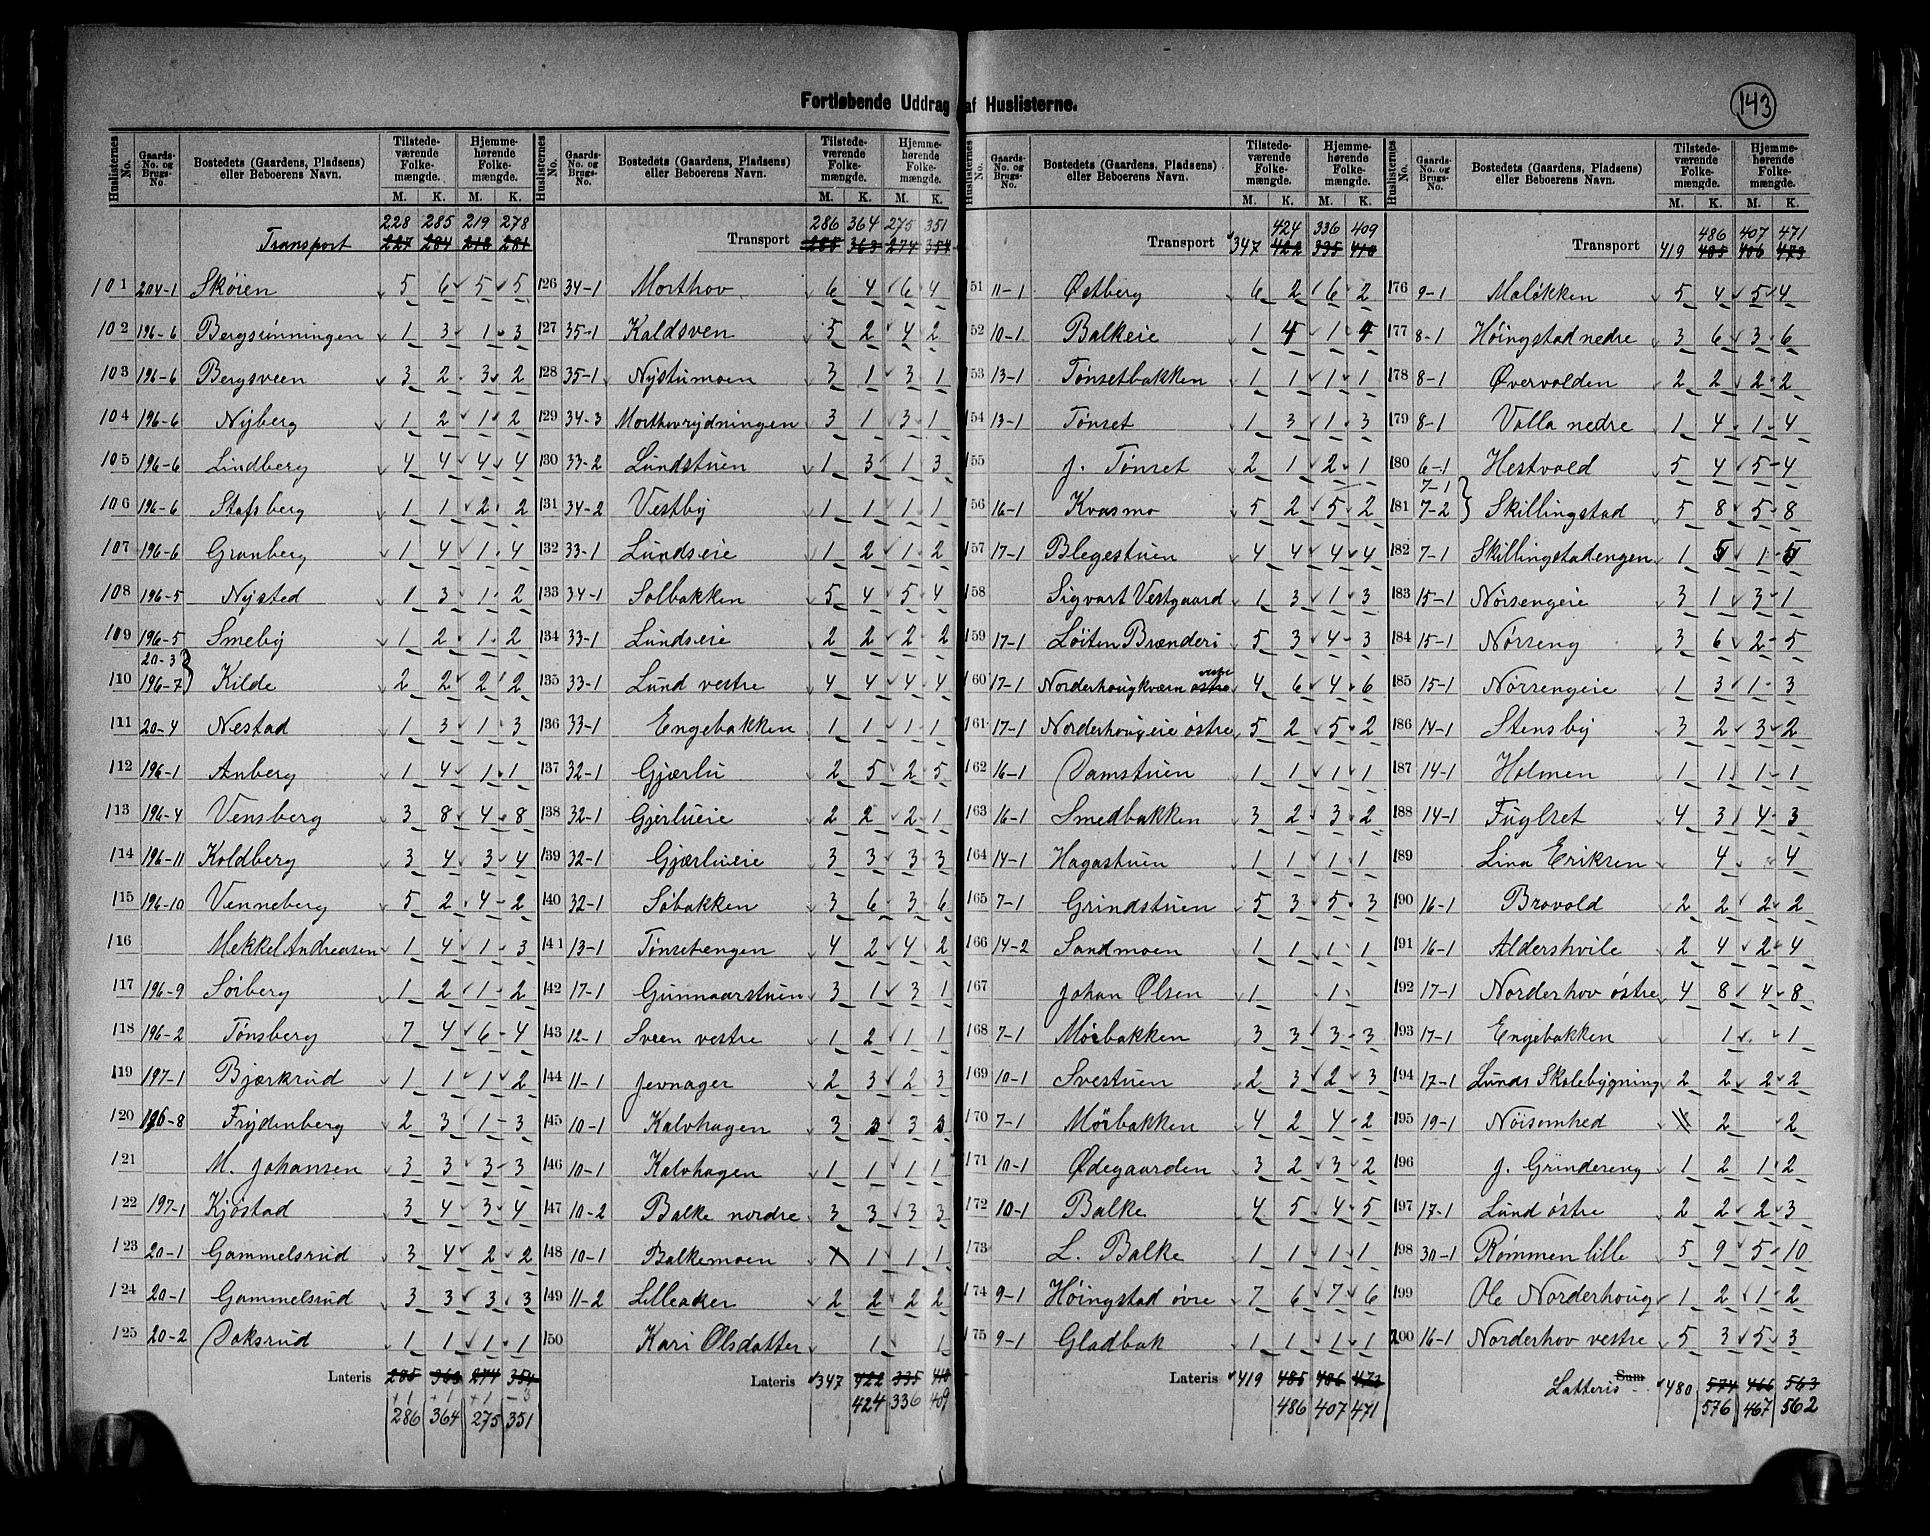 Fortløbende Uddrag af Huslisterne.
143
Huslisternes No. | Gaards-No. og Brugs-No. | Bostedets (Gaardens, Pladsens) eller Beboerens Navn. | Tilstedeværende Folkemængde. M. K. | Hjemmehørende Folkemængde. M. K.
Transport 228 285 219 278
227 284 218 281
101 204-1 Skøien 5 6 5 5
102 196-6 Bergsrønningen 1 3 1 3
103 196-6 Bergsveen 3 2 3 2
104 196-6 Nyberg 1 2 1 2
105 196-6 Lindberg 4 4 4 4
106 196-6 Stafsberg 1 1 2 2
107 196-6 Granberg 1 4 1 4
108 196-5 Nysted 1 3 1 2
109 196-5 Smeby 1 2 1 2
110 20-3 196-7 Kilde 2 2 2 2
111 20-4 Nestad 1 3 1 3
112 196-1 Anberg 1 4 1 1
113 196-4 Vensberg 3 8 4 8
114 196-11 Koldberg 3 4 3 4
115 196-10 Venneberg 5 2 4 2
116 Mekkel Andreasen 1 4 1 3
117 196-9 Sørberg 1 2 1 2
118 196-2 Tønsberg 7 4 6 4
119 197-1 Bjørkrud 1 1 1 2
120 196-8 Frydenberg 2 3 1 3
121 M. Johansen 3 3 3 3
122 197-1 Kjøstad 3 4 3 4
123 20-1 Gammelsrud 3 4 2 2
124 20-1 Gammelsrud 3 3 3 3
125 20-2 Daksrud 1 1 1 1
Lateris 285 363 274 354
+1 +1 +1 -3
286 364 275 351
Huslisternes No. | Gaards-No. og Brugs-No. | Bostedets (Gaardens, Pladsens) eller Beboerens Navn. | Tilstedeværende Folkemængde. M. K. | Hjemmehørende Folkemængde. M. K.
286 364 275 351
Transport 285 363 274 354
126 34-1 Morthov 6 4 6 4
127 35-1 Kaldsven 5 2 4 2
128 35-1 Nystumoen 3 1 3 1
129 34-3 Morthovrydningen 3 1 3 1
130 33-2 Lundstuen 1 3 1 3
131 34-2 Vestby 1 1 1 1
132 33-1 Lundseie 1 2 1 2
133 34-1 Solbakken 5 4 5 4
134 33-1 Lundseie 2 2 2 2
135 33-1 Lund vestre 4 4 4 4
136 33-1 Engebakken 1 1 1 1
137 32-1 Gjærlu 2 5 2 5
138 32-1 Gjerlueie 2 2 2 1
139 32-1 Gjærlueie 3 3 3 3
140 32-1 Søbakken 3 6 3 6
141 13-1 Tønsetengen 4 2 4 2
142 17-1 Gunnaarstuen 3 1 3 1
143 12-1 Sveen vestre 1 2 1 1
144 11-1 Jevnager 2 3 2 3
145 10-1 Kalvhagen 3 3 3 3
146 10-1 Kalvhagen 1 1 1 1
147 10-2 Balke nordre 3 3 3 3
148 10-1 Balkemoen 1 1 1
149 11-2 Lilleaker 2 2 2 2
150 Kari Olsdatter 1 1
Lateris 347 422 335 410
424 336 409
Huslisternes No. | Gaards-No. og Brugs-No. | Bostedets (Gaardens, Pladsens) eller Beboerens Navn. | Tilstedeværende Folkemængde. M. K. | Hjemmehørende Folkemængde. M. K.
424 336 409
Transport 347 422 335 410
151 11-1 Østberg 6 2 6 2
152 10-1 Balkeie 1 4 1 4
153 13-1 Tønsetbakken 1 1 1 1
154 13-1 Tønset 1 3 1 3
155 J. Tønset 2 1 2 1
156 16-1 Kvasmo 5 2 5 2
157 17-1 Blegestuen 4 4 4 4
158 Sigvart Vestgaard 1 3 1 3
159 17-1 Løiten Brænderi 5 3 4 3
160 17-1 Norderhougkværn østre vestre 4 6 4 6
161 17-1 Norderhougeie østre 5 2 5 2
162 16-1 Damstuen 1 1 1 1
163 16-1 Smedbakken 3 2 3 2
164 14-1 Hagastuen 1 1 1 1
165 7-1 Grindstuen 5 3 5 3
166 14-2 Sandmoen 1 1 1 1
167 Johan Olsen 1 1
168 7-1 Mørbakken 3 3 3 3
169 10-1 Svestuen 2 3 2 3
170 7-1 Mørbakken 4 2 4 2
171 10-1 Ødegaarden 3 2 3 2
172 10-1 Balke 4 5 4 5
173 L. Balke 1 1 1 1
174 9-1 Høingstad øvre 7 6 7 6
175 9-1 Gladbak 1 1 1 1
Lateris 419 485 406 473
486 407 471
Huslisternes No. | Gaards-No. og Brugs-No. | Bostedets (Gaardens, Pladsens) eller Beboerens Navn. | Tilstedeværende Folkemængde. M. K. | Hjemmehørende Folkemængde. M. K.
486 407 471
Transport 419 485 406 473
176 9-1 Maløkken 5 4 5 4
177 8-1 Høingstad nedre 3 6 3 6
178 8-1 Øvervolden 2 2 2 2
179 8-1 Valla nedre 1 4 1 4
180 6-1 Hestvold 5 4 5 4
181 7-1 7-2 Skillingstad 5 8 5 8
182 7-1 Skillingstadengen 1 5 1 5
183 15-1 Nørsengeie 3 1 3 1
184 15-1 Nørreng 3 6 2 5
185 15-1 Nørrengeie 1 3 1 3
186 14-1 Stensby 3 2 3 2
187 14-1 Holmen 1 1 1 1
188 14-1 Fuglset 4 3 4 3
189 Lina Eriksen 4 4
190 16-1 Bravold 2 2 2 2
191 16-1 Aldershvile 2 4 2 4
192 17-1 Norderhov østre 4 8 4 8
193 17-1 Engebakken 1 1
194 17-1 Lunds Skolebygning 2 2 2 2
195 19-1 Nøisomhed 2 2
196 J. Grindereng 1 2 1 2
197 17-1 Lund østre 2 2 2 3
198 30-1 Rømmen lille 5 9 5 10
199 Ole Norderhoug 1 2 1 2
200 16-1 Norderhov vestre 5 3 5 3
Sum
Latteris 480 574 466 563
576 467 562